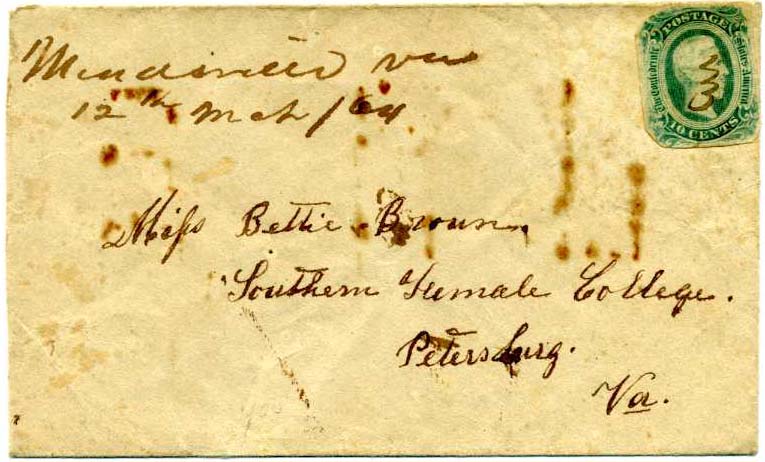 Meadsville va
12th Mch /64
POSTAGE
The Confederate States America
10 CENTS
Miss Bettie Brown.
Southern Female College.
Petersburg.
Va.